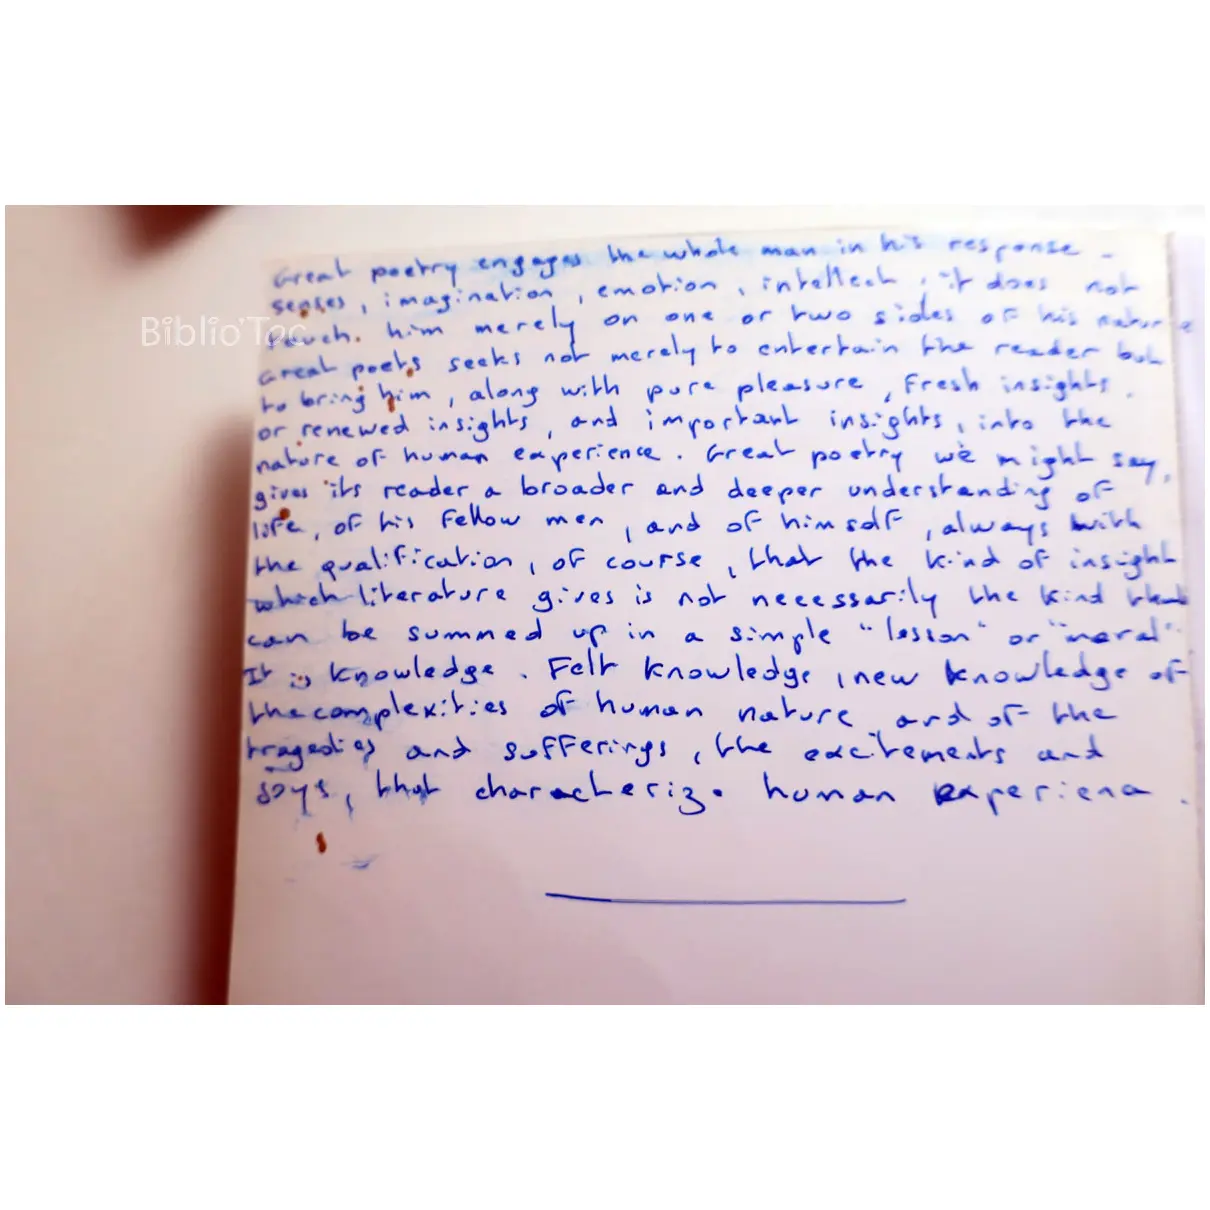 Great poetry engages the whole man in his response -
senses, imagination, emotion, intellect, it does not
touch him merely on one or two sides of his nature
BiblioTec
Great poets seeks not merely to entertain the reader but
to bring him, along with pure pleasure, Fresh insights.
or renewed insights, and important insights, into the
nature of human experience. Great poetry we might say,
gives its reader a broader and deeper understanding of
life, of his Fellow men, and of himself, always with
the qualification, of course, that the kind of insight
which literature gives is not necessarily the kind that
can be summed up in a simple "lesson" or "moral".
It is knowledge. Felt knowledge, new knowledge of
the complexities of human nature and of the
tragedies and sufferings, the excitements and
joys, that characterize human experiena.